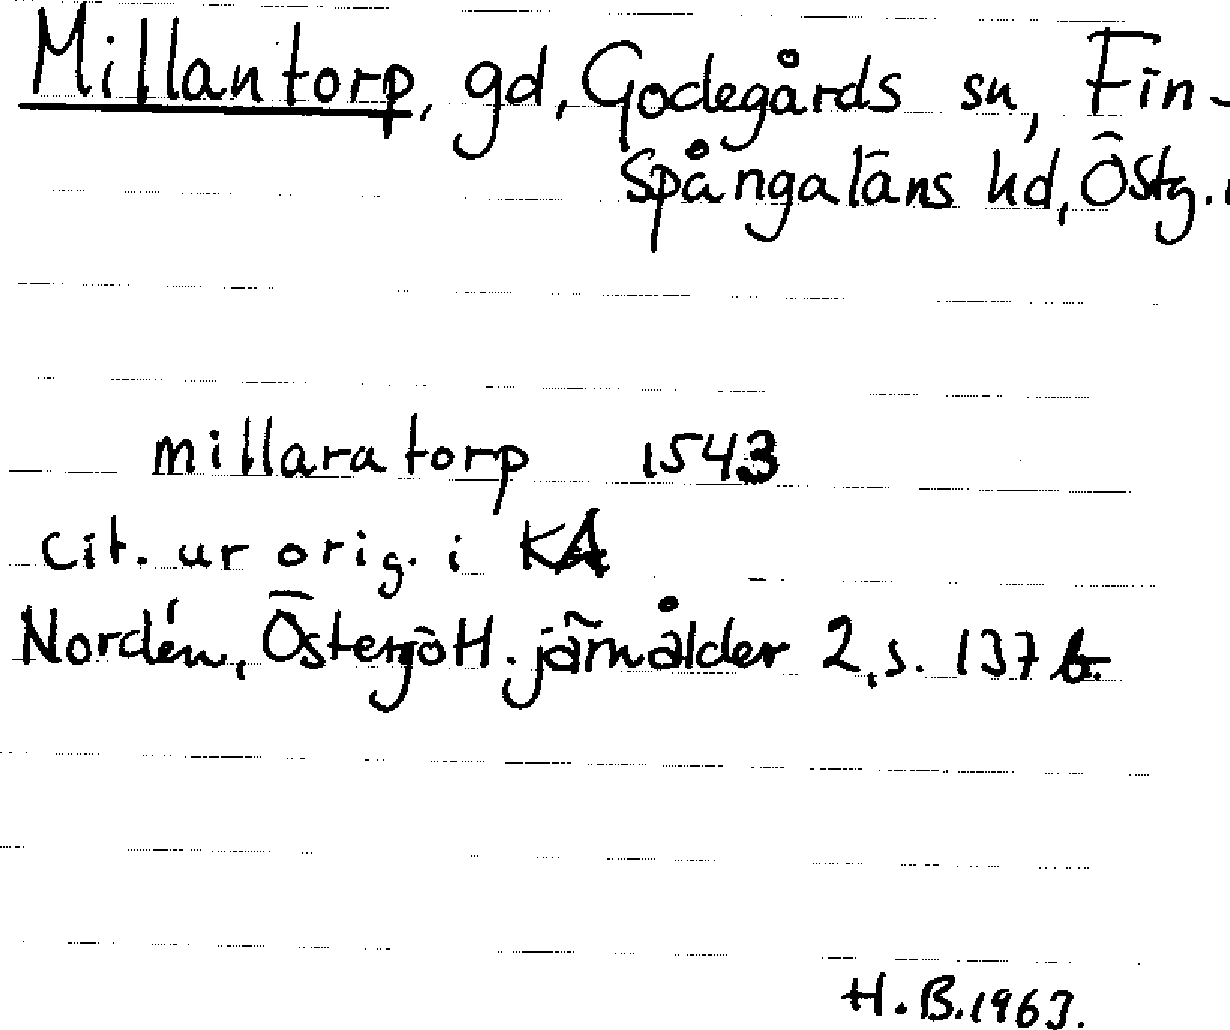 Millantorp, gd, Godegårds sn, Fin-
spångaläns hd, Östg.
millaratorp 1543
Cit. ur orig. i KA
Nordén, Östergötl. järnålder 2, s. 137
H.B. 1963.